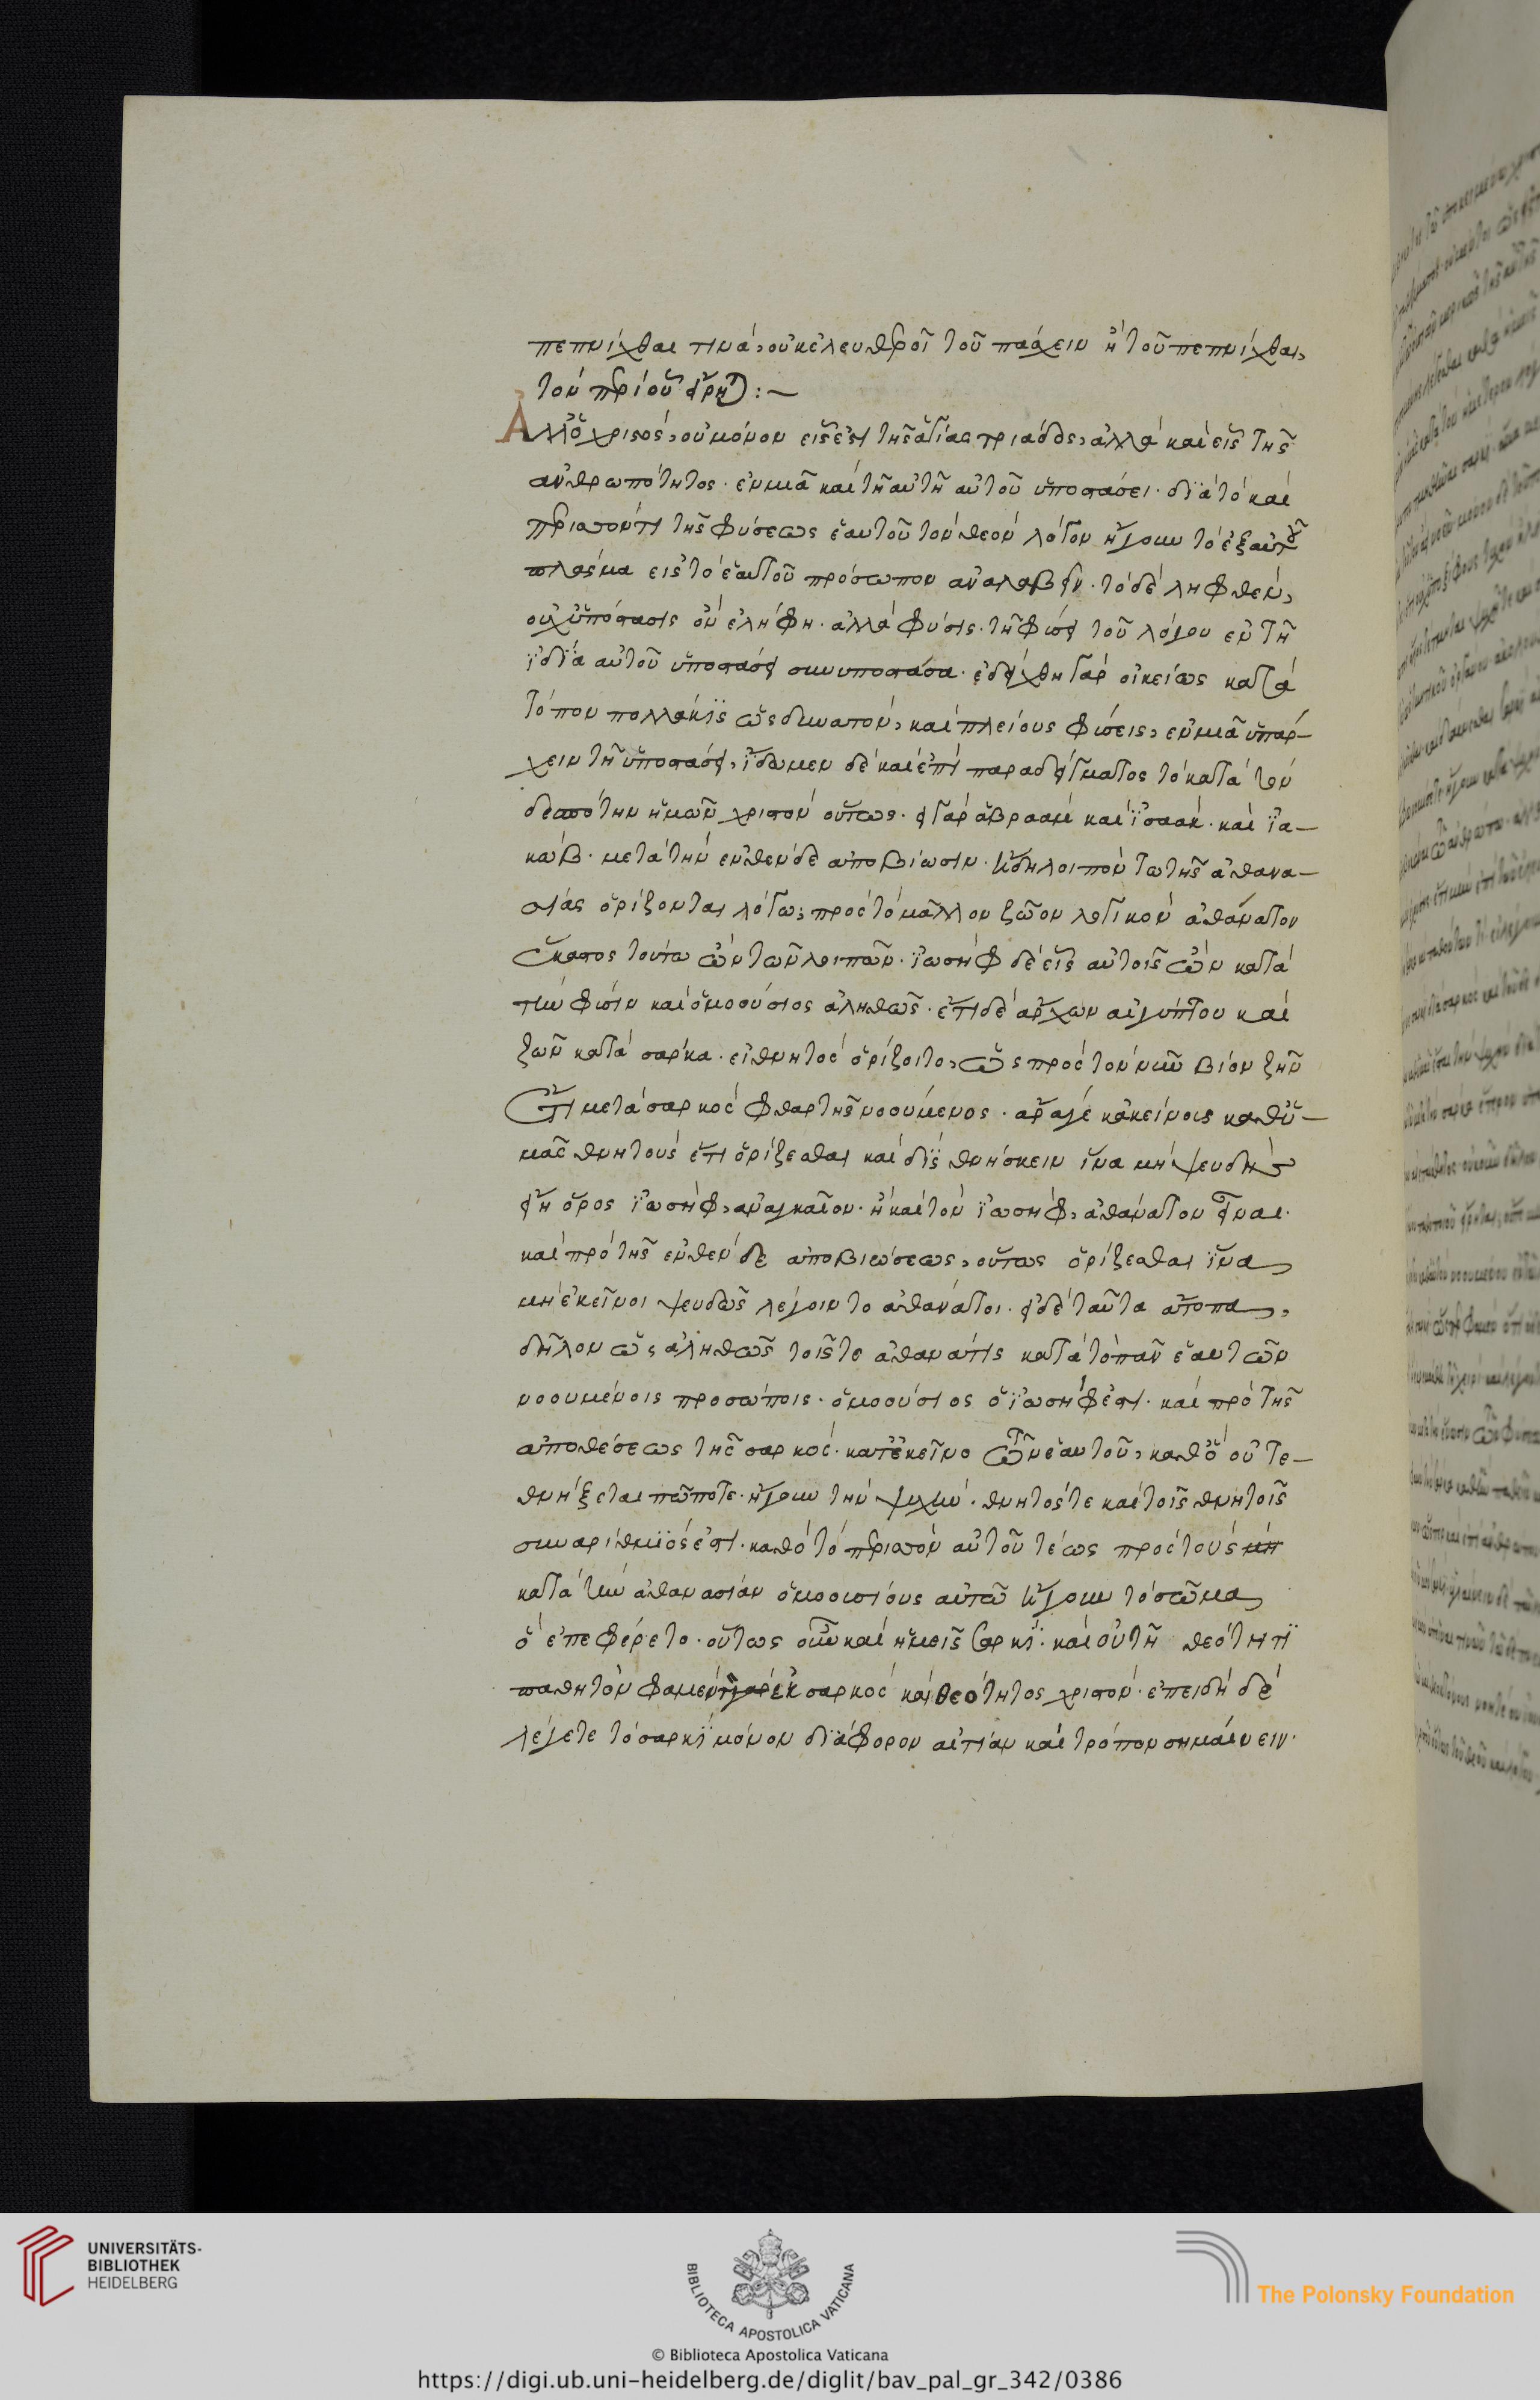 πεπνίχθαι τινὰ, οὐκ ἐλευθεροῖ τοῦ πάσχειν ἢ τοῦ πεπνίχθαι,
τὸν περὶ οὗ εἴρηται :~
Ἀλλ' ὁ χριστὸς, οὐ μόνον εἷς ἐστὶ τῆς ἁγίας τριάδος, ἀλλὰ καὶ εἷς τῆς
ἀνθρωπότητος· ἐν μιᾷ καὶ τῇ αὐτῇ αὐτοῦ ὑποστάσει· διὰ τὸ καὶ
τῆς φύσεως ἑαυτοῦ τὸν θεὸν λόγον ἤγουν τὸ ἐξ αὐτοῦ
πλάσμα εἰς τὸ ἑαυτοῦ πρόσωπον ἀναλαβεῖν· τὸ δὲ ληφθὲν,
οὐχ ὑπόστασις ὂν ἐλήφθη· ἀλλὰ φύσις· τῇ φύσει τοῦ λόγου ἐν τῇ
ἰδίᾳ αὐτοῦ ὑποστάσει συνυποστᾶσα· ἐδείχθη γὰρ οἰκείως κατὰ
τόπον πολλάκις ὡς δυνατὸν, καὶ πλείους φύσεις, ἐν μιᾷ ὑπάρ-
χειν τῇ ὑποστάσει, ἴδωμεν δὲ καὶ ἐπὶ παραδείγματος τὸ κατὰ τὸν
δεσπότην ἡμῶν χριστὸν οὕτως· εἰ γὰρ ἀβραὰμ καὶ ἰσαὰκ· καὶ ἰα-
κώβ· μετὰ τὴν ἐνθένδε ἀποβίωσιν· ἤδη λοιπὸν τῷ τῆς ἀθανα-
σίας ὁρίζονται λόγῳ, πρὸς τὸ μᾶλλον ζῶον λογικὸν ἀθάνατον
ἕκαστος τούτων ὢν τῶν λοιπῶν· ἰωσὴφ δὲ εἷς αὐτοῖς ὢν κατὰ
τὴν φύσιν καὶ ὁμοούσιος ἀληθῶς· ἔτι δὲ ἄρχων αἰγύπτου καὶ
ζῶν κατὰ σάρκα· εἰ θνητὸς ὁρίζοιτο, ὡς πρὸς τὸν νῦν βίον ζῆν
ἔτι μετὰ σαρκὸς φθαρτῆς νοούμενος· ἆρά γε κἀκείνοις καθ' ὑ-
μᾶς θνητοὺς ἔτι ὁρίζεσθαι καὶ δὶς θνήσκειν ἵνα μὴ ψευδὴς
εἴη ὅρος ἰωσὴφ, ἀναγκαῖον· ἢ καὶ τὸν ἰωσὴφ, ἀθάνατον εἶναι·
καὶ πρὸ τῆς ἐνθένδε ἀποβιώσεως, οὕτως ὁρίζεσθαι ἵνα
μὴ ἐκεῖνοι ψευδῶς λέγοιντο ἀθάνατοι· εἰ δὲ ταῦτα ἄτοπα,
δῆλον ὡς ἀληθῶς τοῖς τε ἀθανάτοις κατὰ τὸ πᾶν ἑαυτῶν
νοουμένοις προσώποις· ὁμοούσιος ὁ ἰωσήφ ἐστι· καὶ πρὸ τῆς
ἀποθέσεως τῆς σαρκός· κατ' ἐκεῖνο τῶν ἑαυτοῦ, καθ' ὃ οὐ τε-
θνήξεται πώποτε· ἤγουν τὴν ψυχήν· θνητός τε καὶ τοῖς θνητοῖς
συναρίθμιός ἐστι· καθὸ τὸ αὐτοῦ τέως πρὸς τοὺς μὴ
κατὰ τὴν ἀθανασίαν ὁμοουσίους αὐτῷ ἤγουν τὸ σῶμα
ὃ ἐπεφέρετο· οὕτως οὖν καὶ ἡμεῖς σαρκὶ· καὶ οὐ τῇ θεότητι
παθητὸν φαμὲν τὸν ἐκ σαρκὸς καὶ θεότητος χριστόν· ἐπειδὴ δὲ
λέγετε τὸ σαρκὶ μόνον διάφορον αἰτίαν καὶ τρόπον σημαίνειν·
UNIVERSITÄTS-
BIBLIOTHEK
HEIDELBERG
BIBLIOTECA APOSTOLICA VATICANA
The Polonsky Foundation
© Biblioteca Apostolica Vaticana
https://digi.ub.uni-heidelberg.de/diglit/bav_pal_gr_342/0386